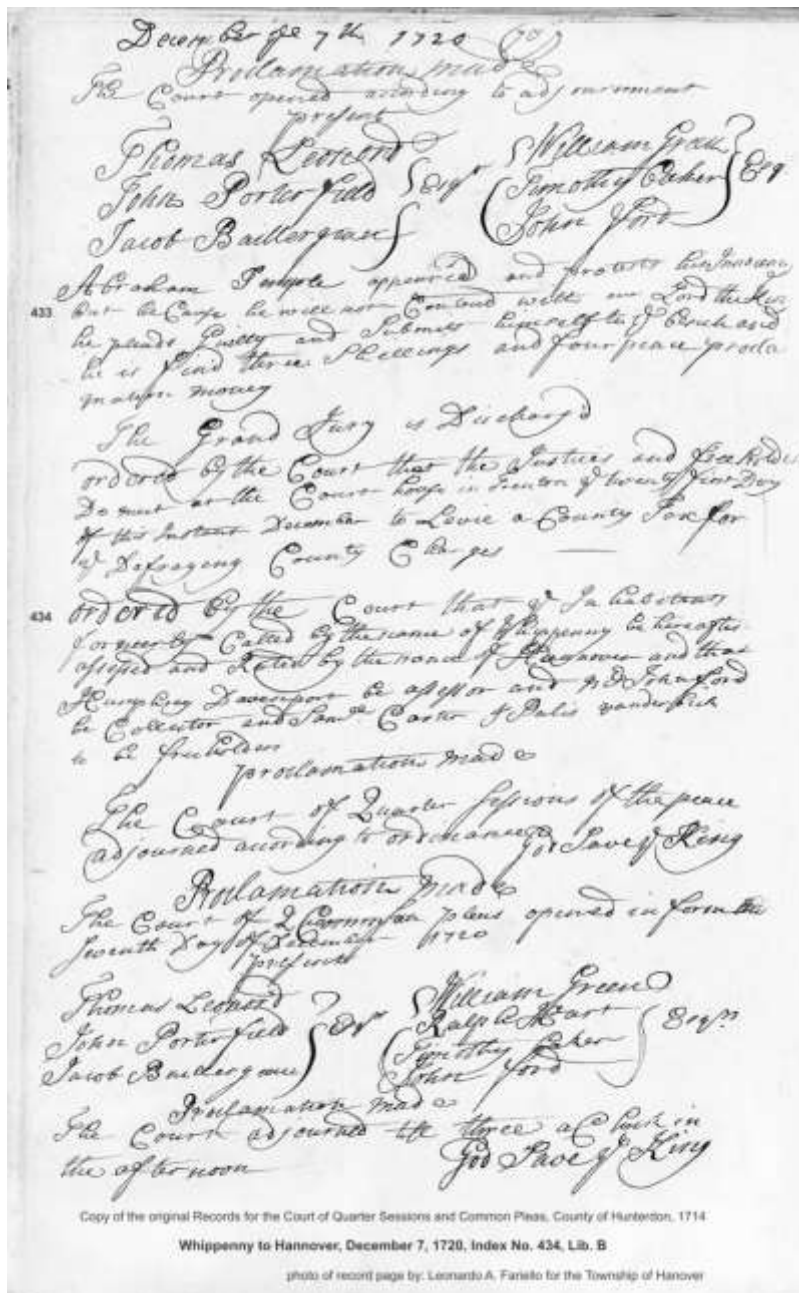 December ye 7th 1720
Proclamation made
The Court opened according to adjournment
present
Thomas Leonard William Green
John Porterfield Esqr Timothy Baker Esq
Jacob Baillergeau John Ford
Abraham Temple appeared and protests his Innocency
433 but because he will not Contend with our Lord the King
he pleads Guilty and Submits himself to ye bench and
he is find three Shillings and four peace procla
mation money
The Grand Jury is Discharg'd
ordered by the Court that the Justices and freeholde
Do meet at the Court house in Trenton ye twenty first Day
of this Instant December to Levie a County Tax for
ye Defraying County Charges
434 ordered by the Court that ye Inhabitants
formerly Called by the name of Whippenny be hereafter
assessed and Rated by the name of Hannover and that
Humphry Davenport be assessor and John Ford
be Collector and Samll Carter & Palis vanderlick
to be freeholders
proclamation made
The Court of Quarter Sessions of the peace
adjourned according to ordinance God Save ye King
Proclamation made
The Court of Common pleas opened in form the
Seventh Day of December 1720
present
Thomas Leonard William Green
John Porterfield Esqr Ralph Hart Esqrs
Jacob Baillergeau Timothy Baker
John Ford
Proclamation made
The Court adjourned till three a Clock in
the afternoon God Save ye King
Copy of the original Records for the Court of Quarter Sessions and Common Pleas, County of Hunterdon, 1714
Whippenny to Hannover, December 7, 1720, Index No. 434, Lib. B
photo of record page by: Leonardo A. Fariello for the Township of Hanover